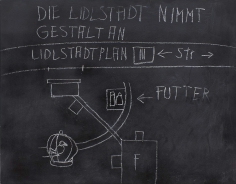 DIE LIDLSTADT NIMMT
GESTALT AN
LIDLSTADTPLAN IN ← STR →
← FUTTER
F